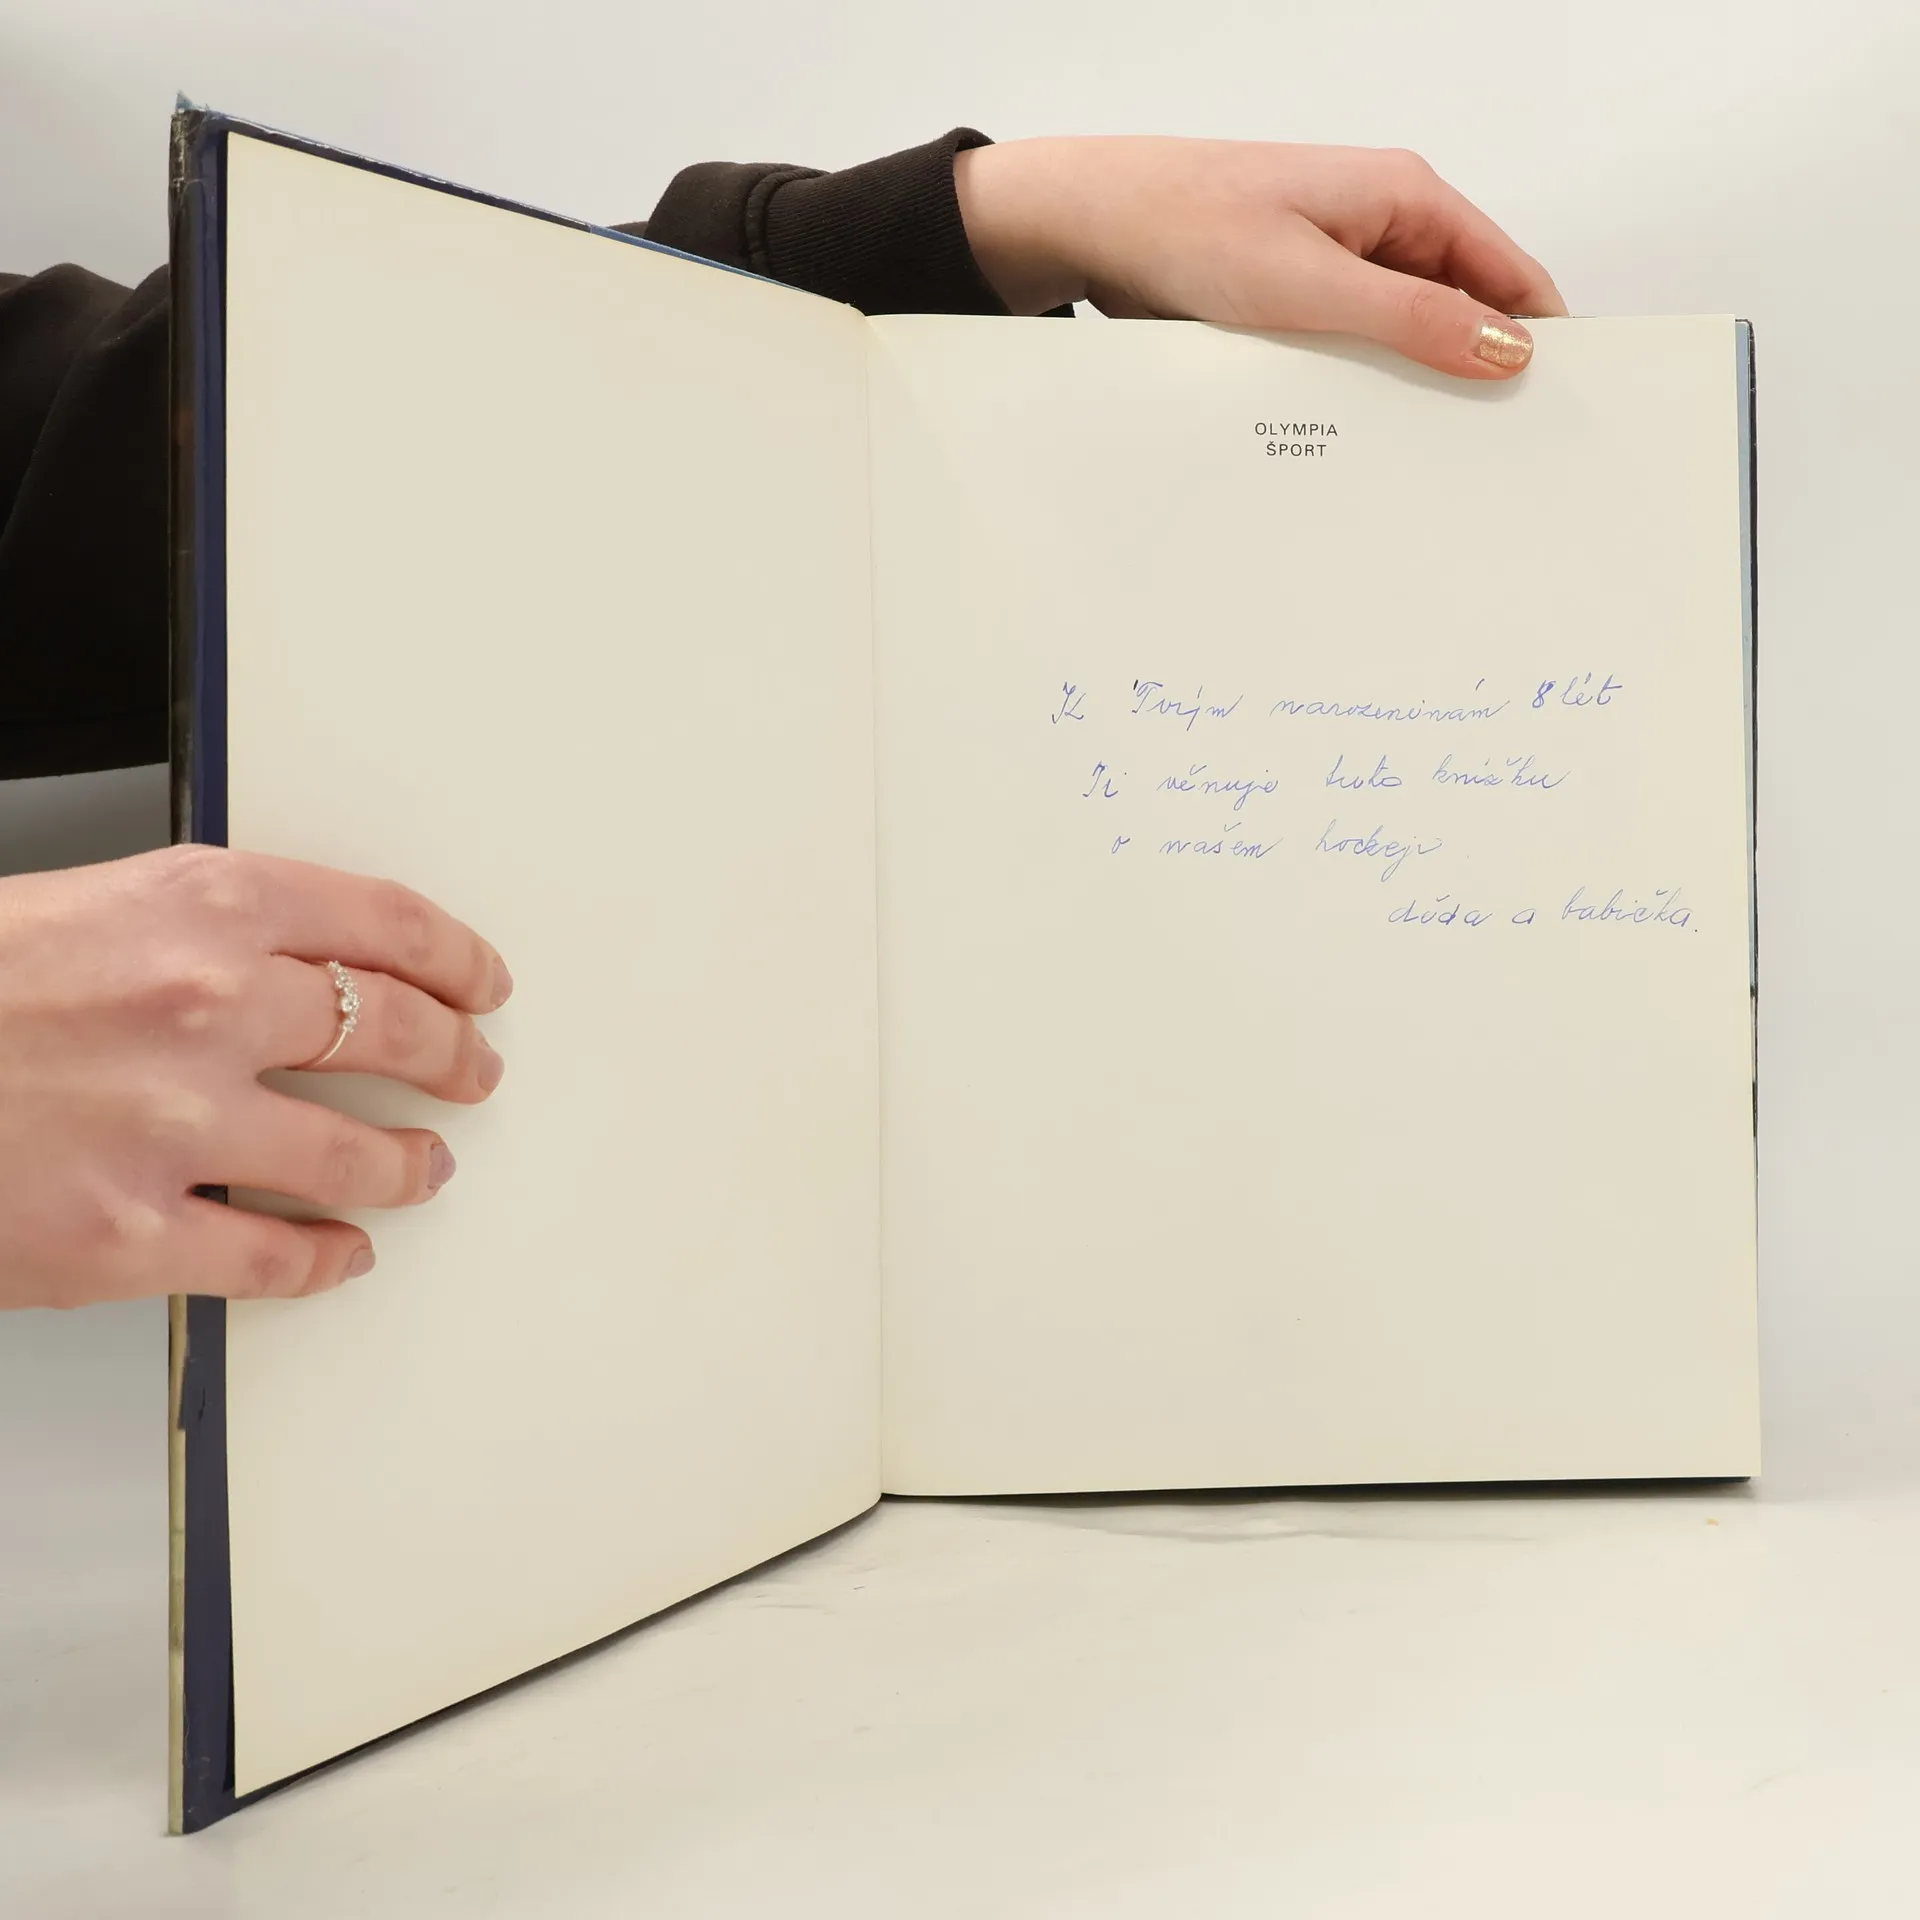 OLYMPIA
ŠPORT
K Tvým narozeninám 8 lét
Ti věnuje tuto knížku
o našem hockeji
děda a babička.